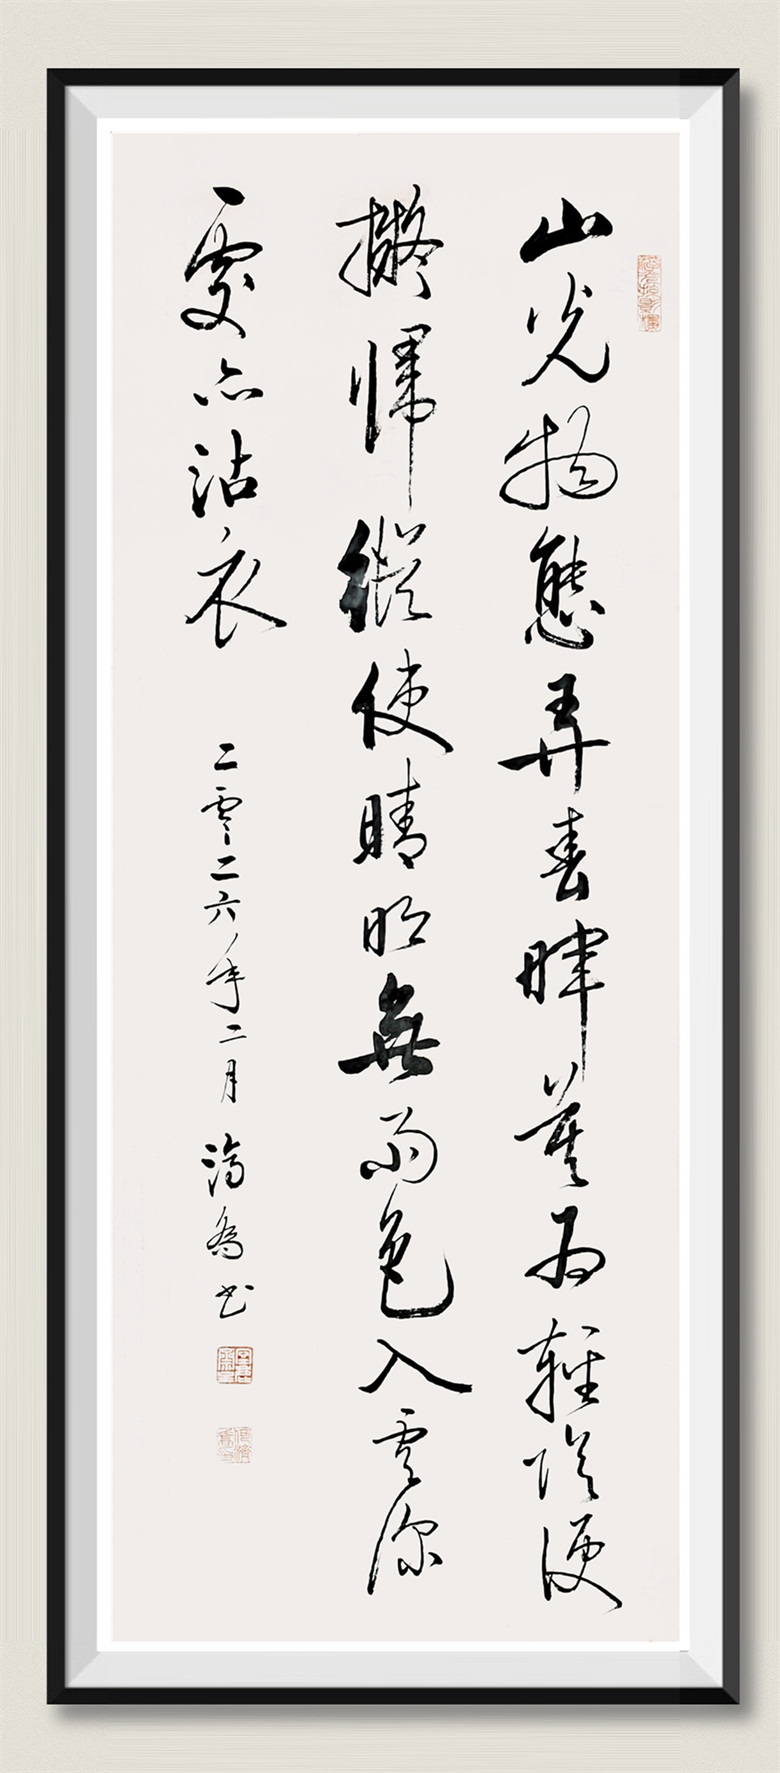 山光物態弄春暉莫為輕陰便
擬歸縱使晴明無雨色入雲深
處亦沾衣
二零二六年二月 書